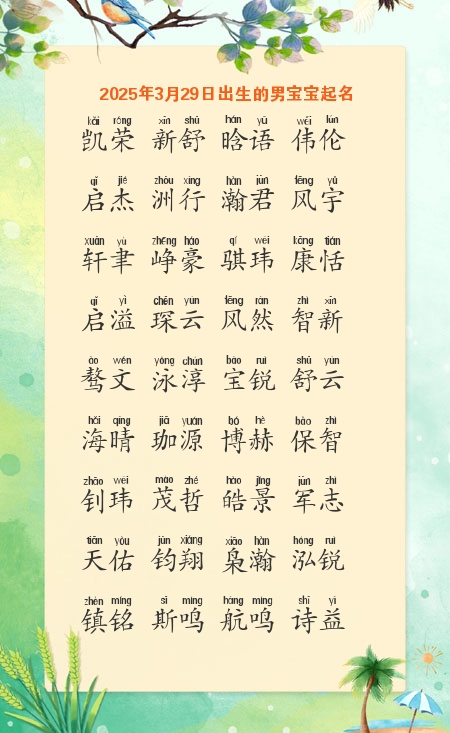 2025年3月29日出生的男宝宝起名
kǎi róng xīn shū hán yǔ wěi lún
凯荣 新舒 晗语 伟伦
qǐ jié zhōu xíng hàn jūn fēng yǔ
启杰 洲行 瀚君 风宇
xuān yù zhēng háo qí wěi kāng tián
轩聿 峥豪 骐玮 康恬
qǐ yì chēn yún fēng rán zhì xīn
启溢 琛云 风然 智新
áo wén yǒng chún bǎo ruì shū yún
骜文 泳淳 宝锐 舒云
hǎi qíng jiā yuán bó hè bǎo zhì
海晴 珈源 博赫 保智
zhāo wěi mào zhé hào jǐng jūn zhì
钊玮 茂哲 皓景 军志
tiān yòu jūn xiáng xiāo hàn hóng ruì
天佑 钧翔 枭瀚 泓锐
zhèn míng sī míng háng míng shī yì
镇铭 斯鸣 航鸣 诗益